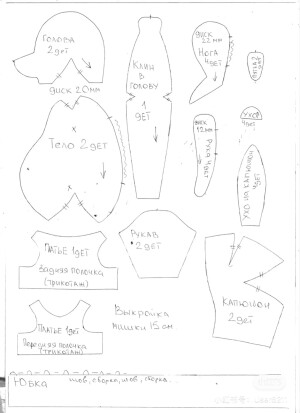 ГОЛОВА
2 дет
ДИСК 20мм
КЛИН
В
ГОЛОВУ
1
ДЕТ
ДИСК
22мм
НОГА
4дет
УХО
4дет
Тело 2дет
ДИСК
15мм
РУКА 4дет
УХО НА КАПЮШОН
4дет
ПЛАТЬЕ 1дет
Задняя полочка
(трикотаж)
РУКАВ
2дет
КАПЮШОН
2дет
ПЛАТЬЕ 1дет
Передняя полочка
(трикотаж)
Выкройка
мишки 15 см
Юбка
шов, сборка, шов, сборка.